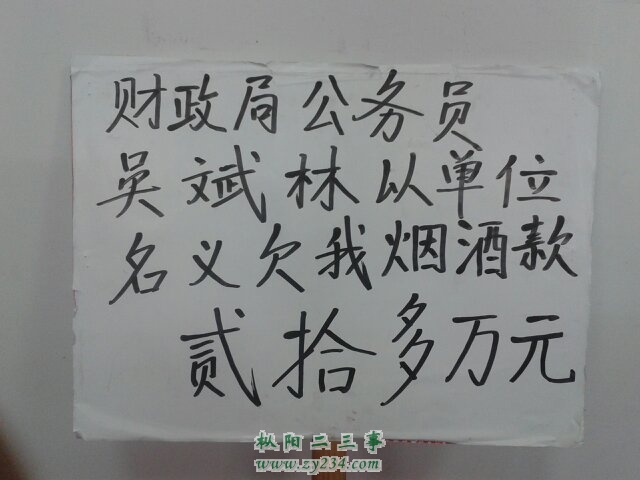 财政局公务员
吴斌林以单位
名义欠我烟酒款
贰拾多万元
枞阳二三事
www.zy234.com